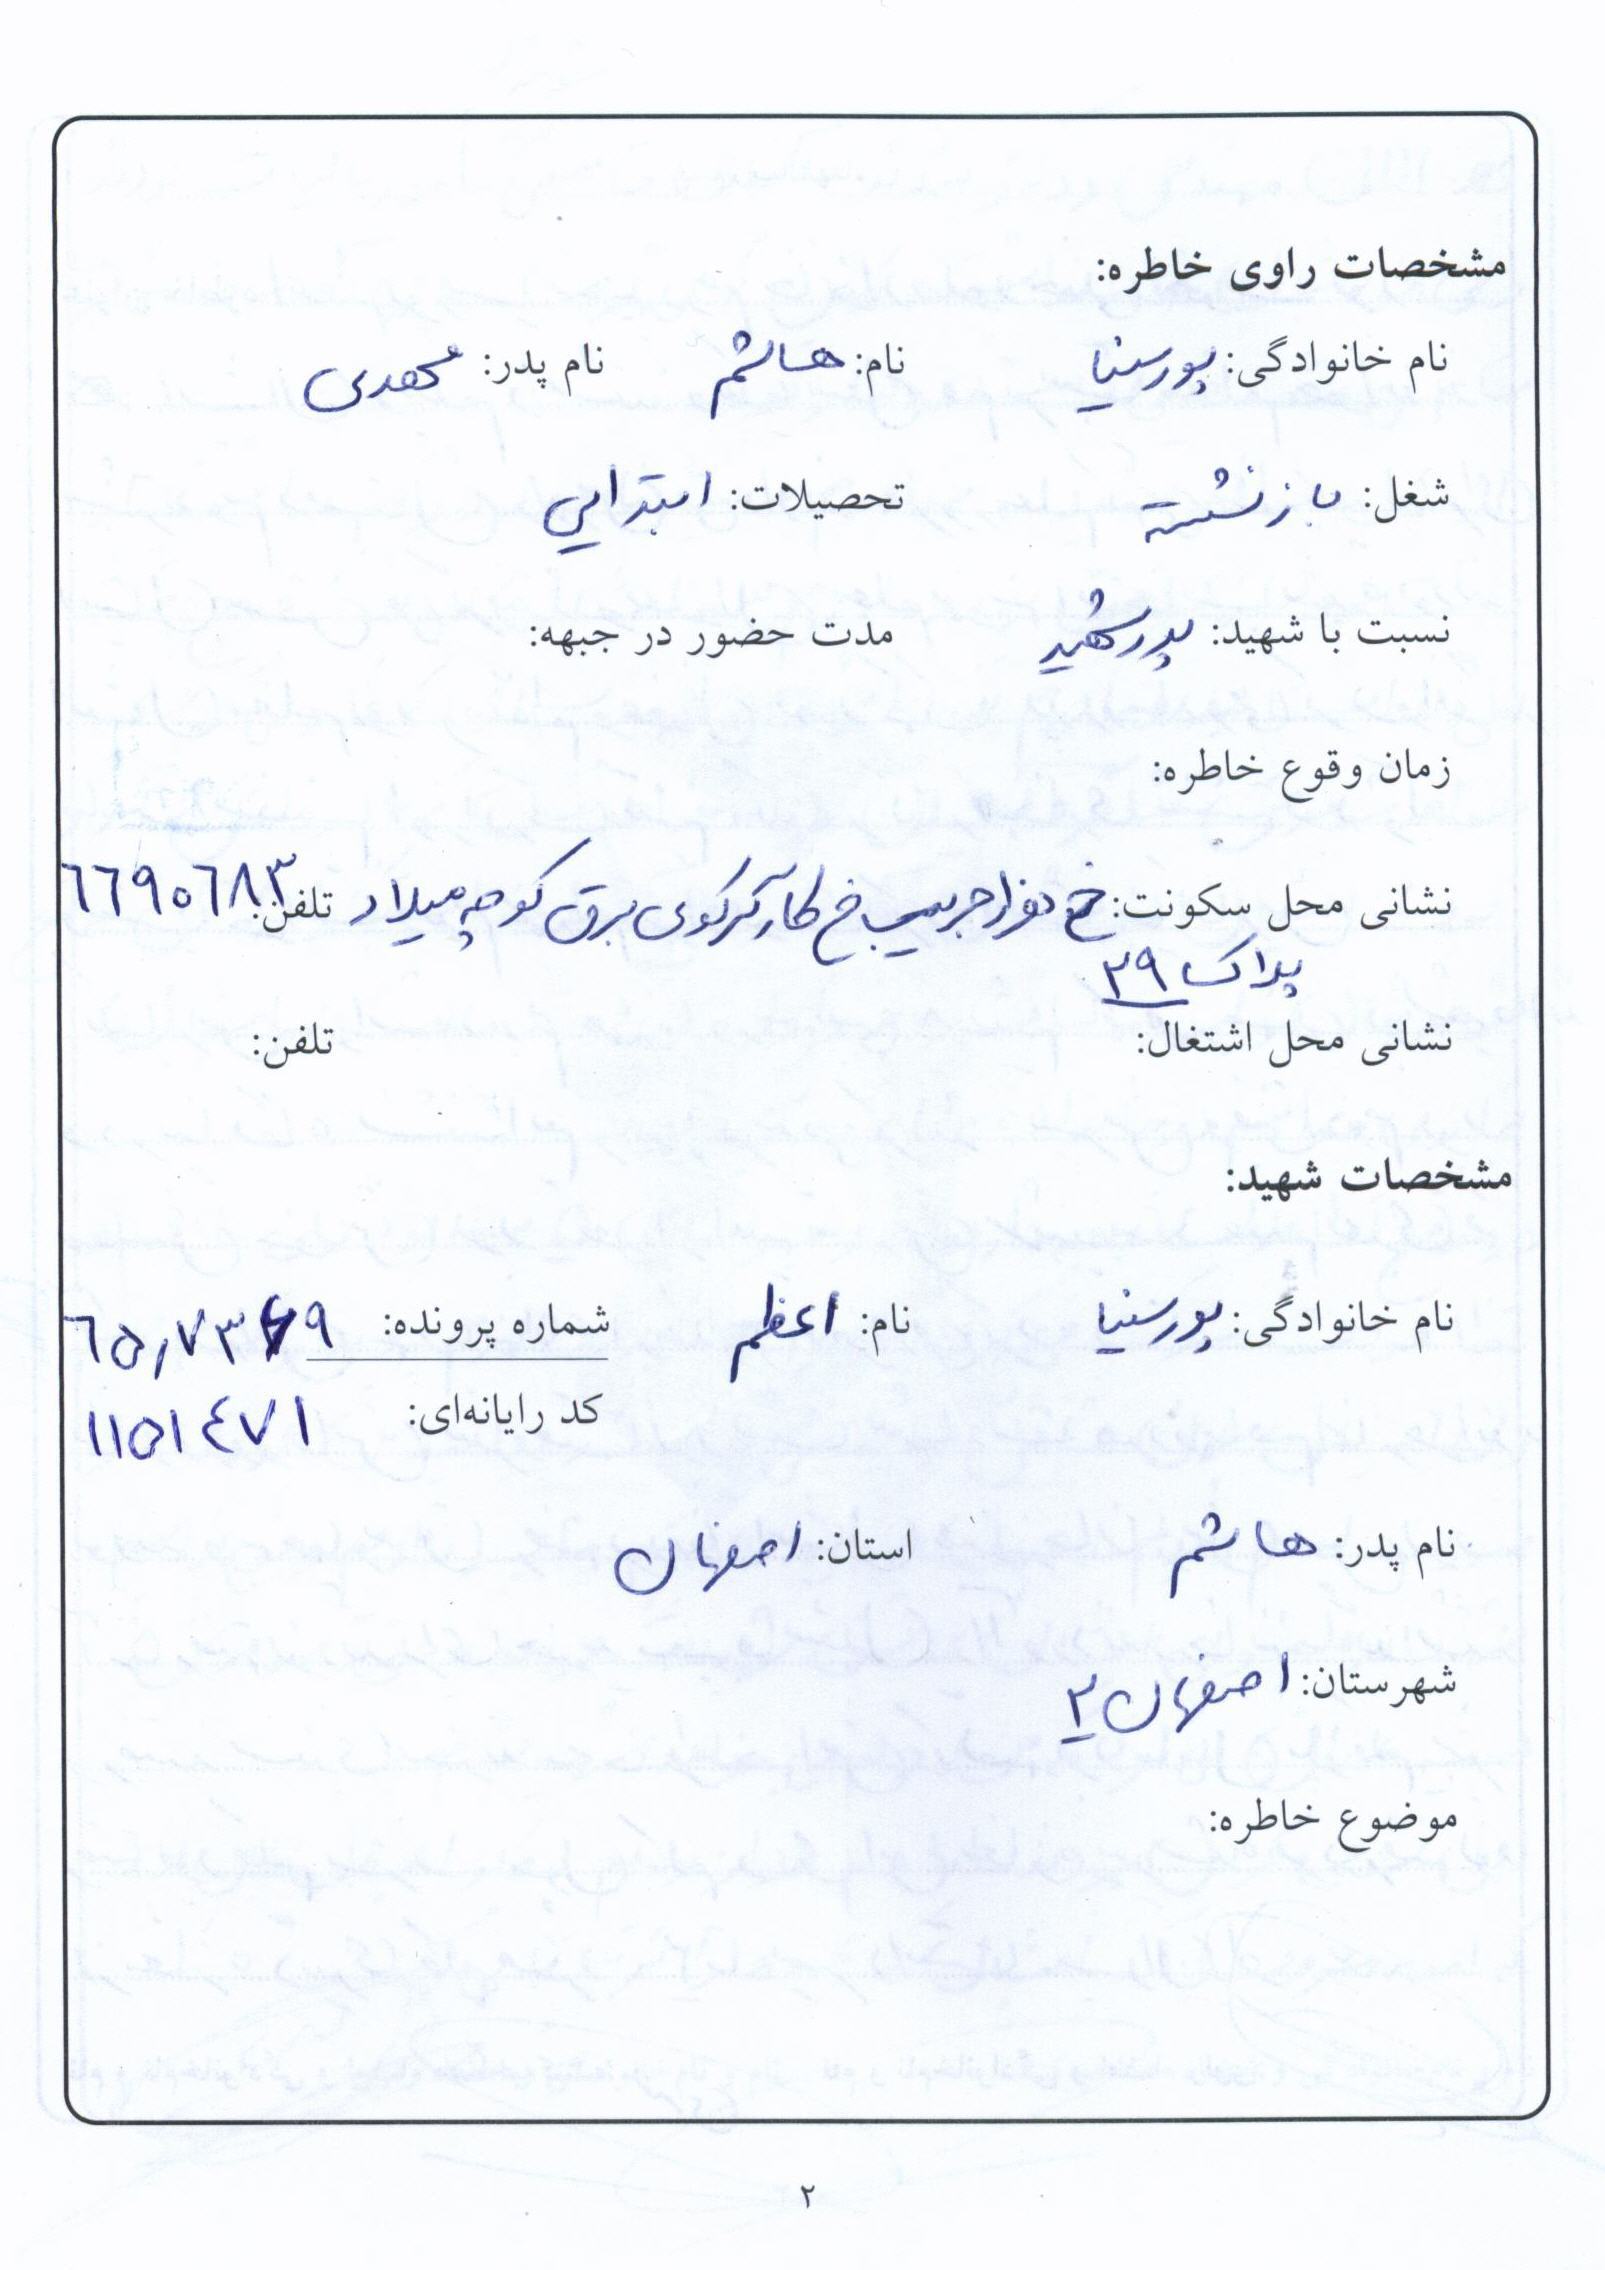 مشخصات راوی خاطره:
نام خانوادگی: پورسینا نام: هاشم نام پدر: مهدی
شغل: بازنشسته تحصیلات: ابتدایی
نسبت با شهید: پدر شهید مدت حضور در جبهه:
زمان وقوع خاطره:
نشانی محل سکونت: خ هزارجریب خ کارگر کوی برق کوچه میلاد تلفن: ٦٦٩٠٦٨٣
پلاک ٢٩
نشانی محل اشتغال: تلفن:
مشخصات شهید:
نام خانوادگی: پورسینا نام: اعظم شماره پرونده:
کد رایانه‌ای: ١١٥١٤٧١
نام پدر: هاشم استان: اصفهان
شهرستان: اصفهان ٢
موضوع خاطره:
٢